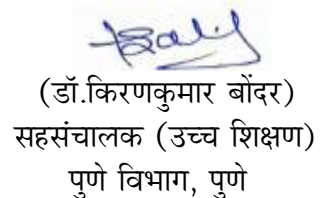 (डॉ.किरणकुमार बोंदर)
सहसंचालक (उच्च शिक्षण)
पुणे विभाग, पुणे